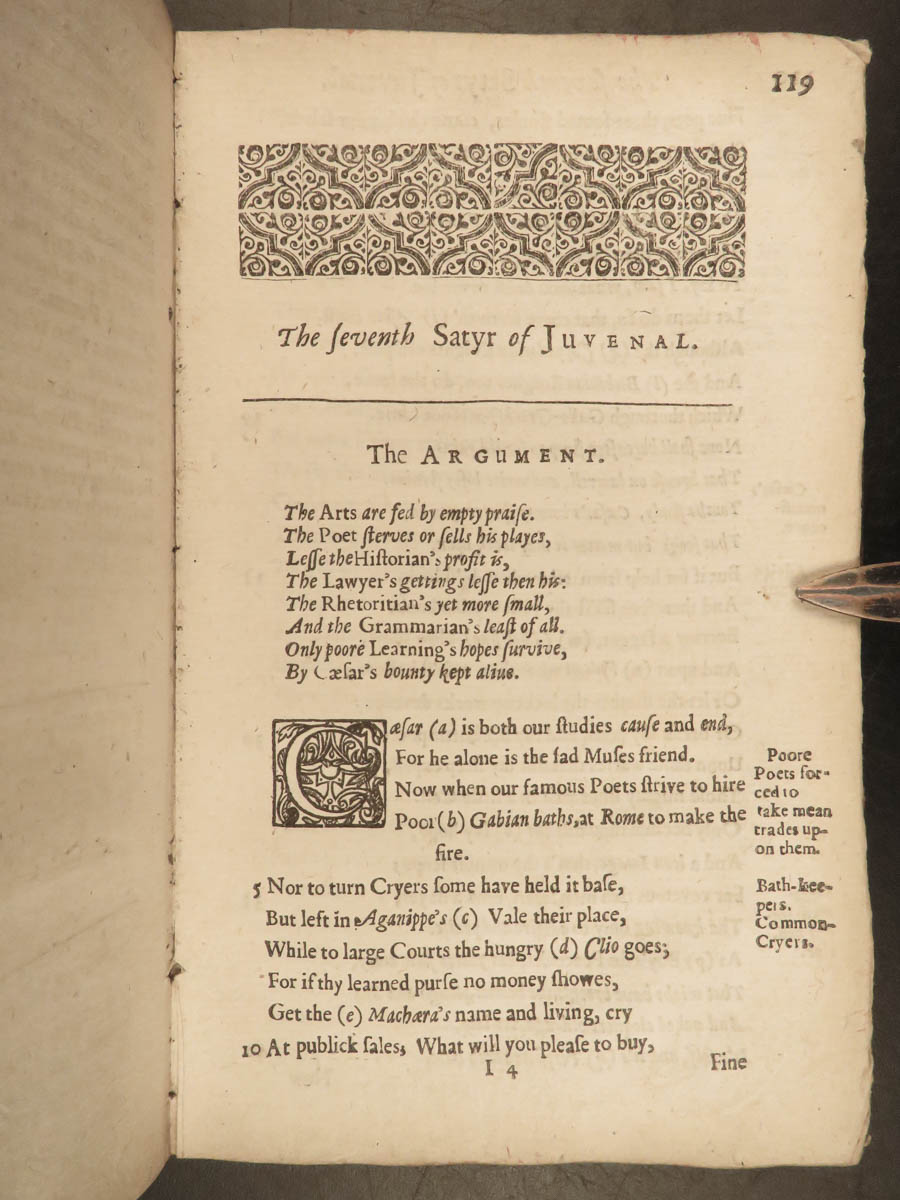 119
The ſeventh Satyr of JUVENAL.
The ARGUMENT.
The Arts are fed by empty praiſe.
The Poet ſterves or ſells his playes,
Leſſe the Hiſtorian's profit is,
The Lawyer's gettings leſſe then his:
The Rhetoritian's yet more ſmall,
And the Grammarian's leaſt of all.
Only poore Learning's hopes ſurvive,
By Cæſar's bounty kept alive.
Cæſar (a) is both our ſtudies cauſe and end,
For he alone is the ſad Muſes friend.
Now when our famous Poets ſtrive to hire
Poor (b) Gabian baths, at Rome to make the
fire.
Poore
Poets for-
ced to
take mean
trades up-
on them.
5 Nor to turn Cryers ſome have held it baſe,
But left in Aganippe's (c) Vale their place,
While to large Courts the hungry (d) Clio goes;
Bath-kee-
pers.
Common-
Cryers.
For if thy learned purſe no money ſhowes,
Get the (e) Machæra's name and living, cry
10 At publick ſales, What will you pleaſe to buy,
I 4
Fine